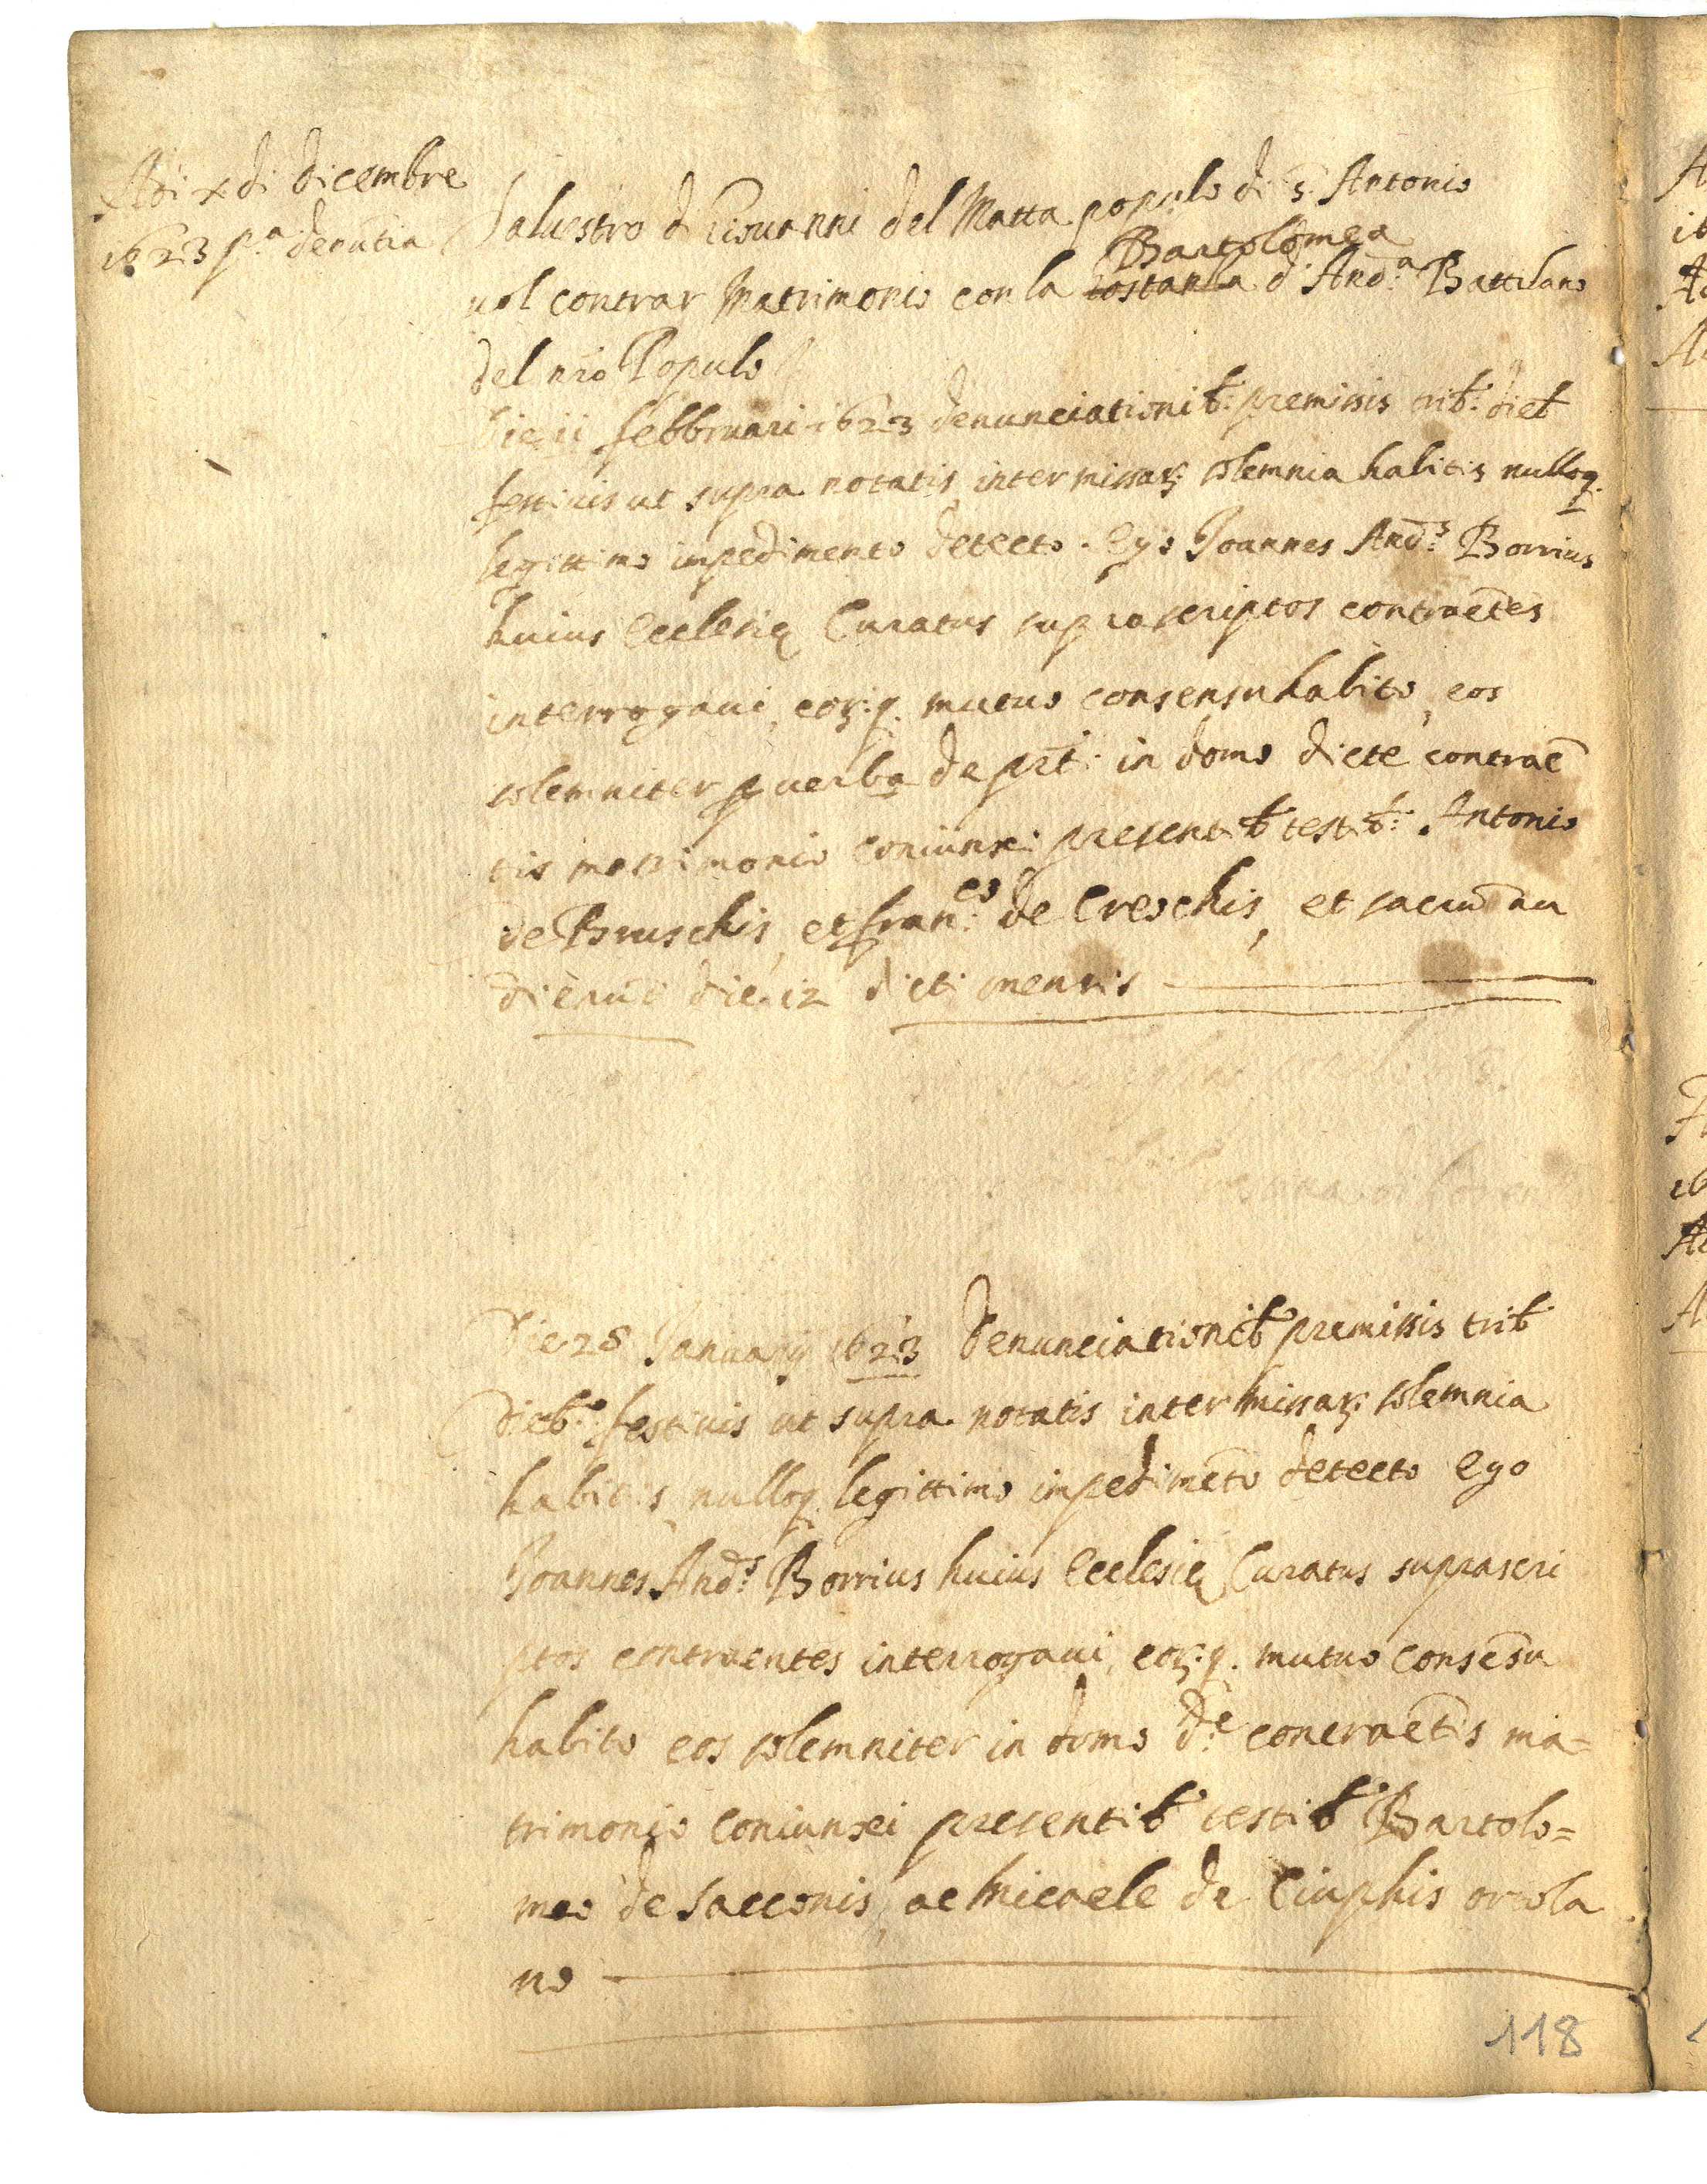 Adi x di dicembre
1623 p.a denũtia
Saluestro di Giouanni del Matta populo di S. Antonio
Bartolomea
uol contrar Matrimonio con la Costanza d'And.a Battilano
del nro Populo
Die ii febbruari 1623 denunciationib: premissis trib: dieb
festiuis ut supra notatis inter missaꝝ solemnia habitis nulloq.
legittimo inpedimento detecto. Ego Joannes And.s Borrius
huius Ecclesię Curatus suprascriptos contraẽtes
interrogaui, eoꝝ:q. mutuo consensu habito, eos
solemniter ꝑ uerba de prñti in domo dicte contraẽ
tis matrimonio coniunxi presentib testib: Antonio
de Bruschis, et fran:co de Creschis, et
die 12 dicti mensis
Die 28 Januarij 1623 denunciationib premissis trib
dieb: festiuis ut supra notatis inter missaꝝ solemnia
habitis, nulloq. legittimo inpedimẽto detecto Ego
Joannes And:s Borrius huius Ecclesię Curatus suprascri
ptos contraentes interrogaui, eoꝝ:q. mutuo consẽsu
habito eos solemniter in domo d:e contraẽtis ma=
trimonio coniunxi presentib testib Bartolo=
meo de Sacconis, ac Micaele de Ciuphis ortola
no
118